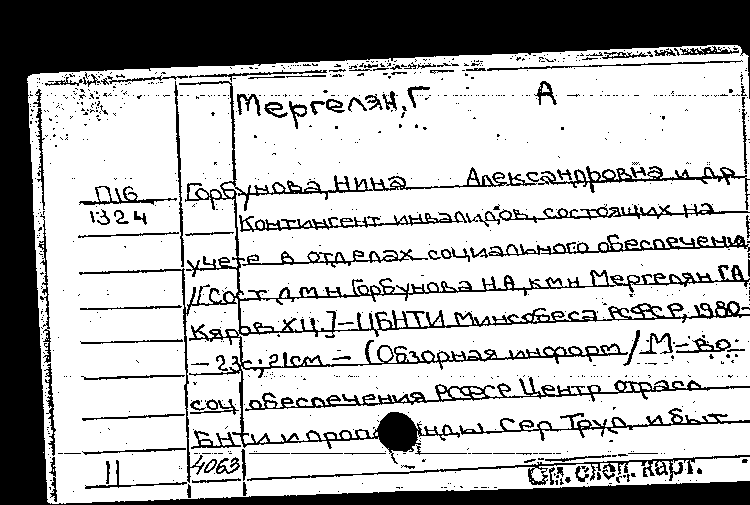 Мергелян, Г А
Горбунова, Нина Александровна и др
П16
1324
Контингент инвалидов, состоящих на
учете в отделах социального обеспечения
/[Сост. д.м.н. Горбунова Н.А, к.м.н Мергелян Г.А,
Х.Ц.]-ЦБНТИ Минсобеса РСФСР, 1980-
- 23с; 21см - (Обзорная информ / М-во
соц обеспечения РСФСР Центр отрасл
БНТИ и проп нды. Сер Труд. и быт
11 4063
См. след. карт.